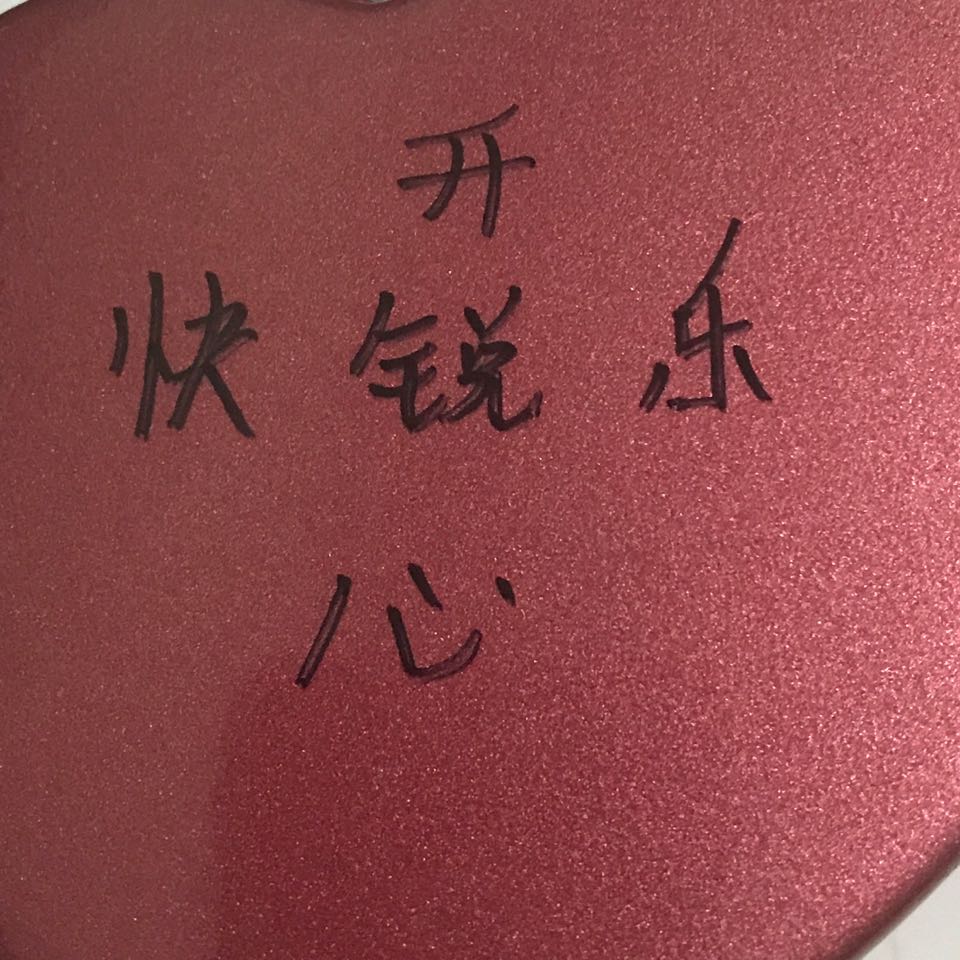 开
快锐乐
心